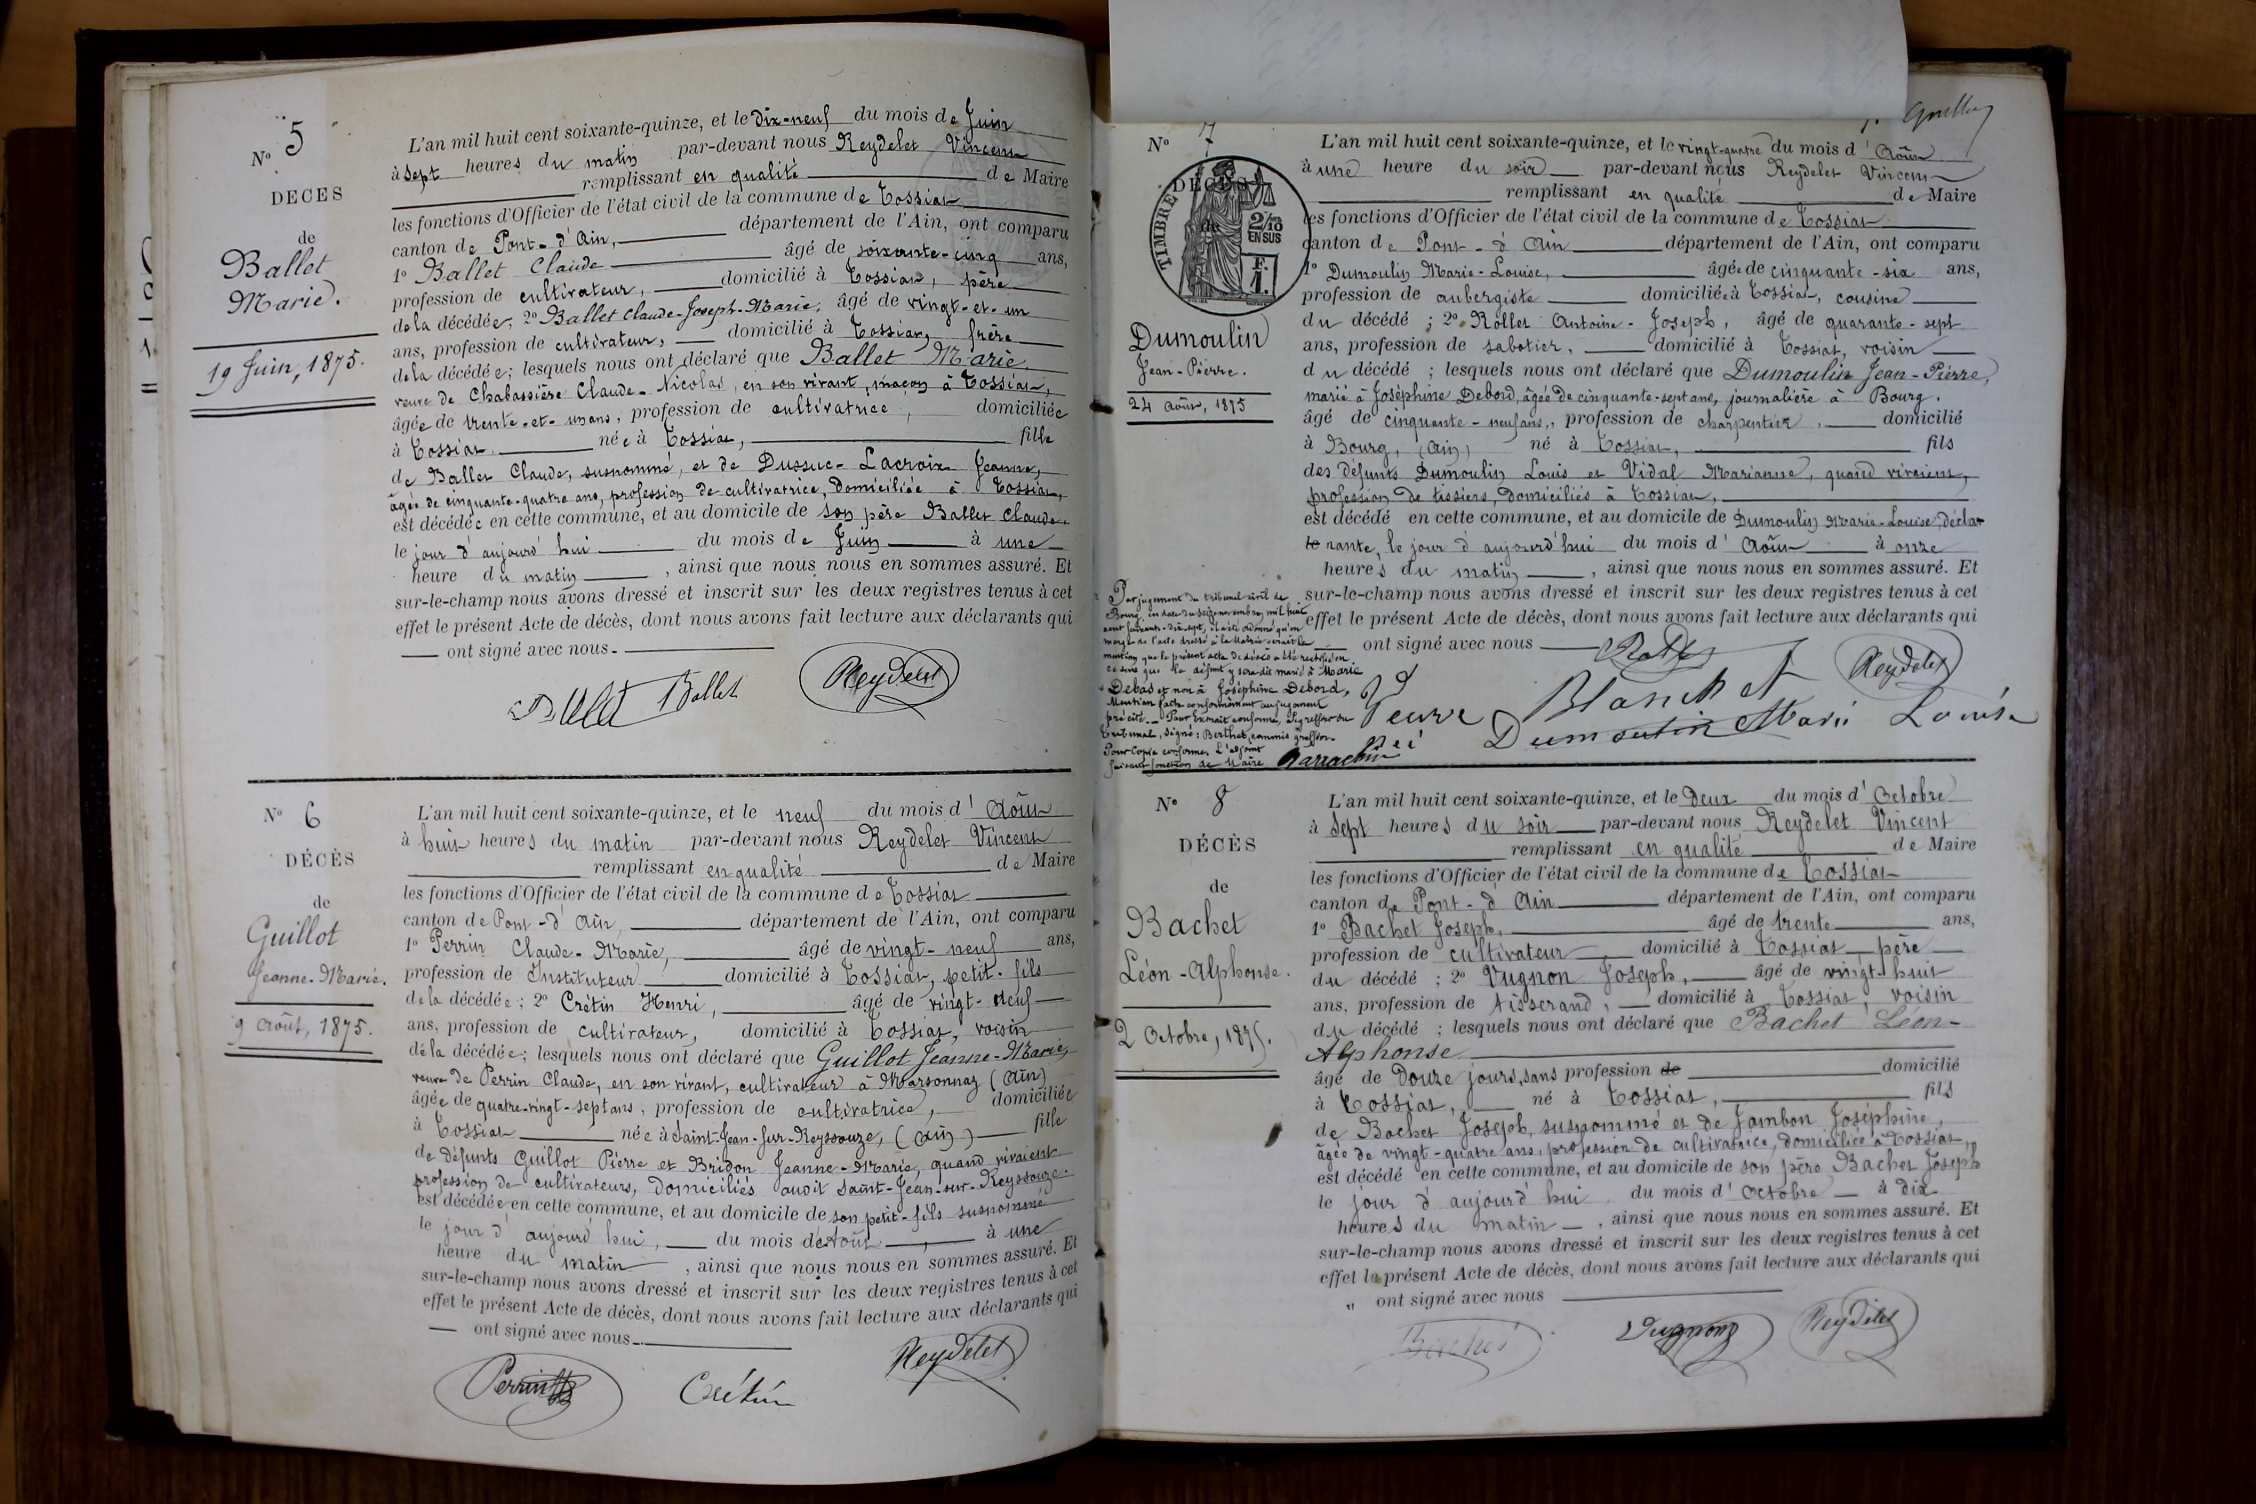 N° 5
DECES
de
Ballet
Marie.
19 Juin, 1875.
L'an mil huit cent soixante-quinze, et le dix-neuf du mois de Juin
à sept heures du matin par-devant nous Reydelet Vincent
remplissant en qualité de Maire
les fonctions d'Officier de l'état civil de la commune de Tossiat
canton de Pont-d'Ain, département de l'Ain, ont comparu
1° Ballet Claude âgé de soixante-cinq ans,
profession de cultivateur, domicilié à Tossiat, père
de la décédée; 2° Ballet Claude-Joseph-Marie, âgé de vingt-et-un
ans, profession de cultivateur, domicilié à Tossiat, frère
de la décédée; lesquels nous ont déclaré que Ballet Marie,
veuve de Chabassière Claude-Nicolas, en son vivant, maçon à Tossiat,
âgée de trente-et-un ans, profession de cultivatrice, domiciliée
à Tossiat née à Tossiat, fille
de Ballet Claude, susnommé, et de Dussuc-Lacroix Jeanne,
âgée de cinquante-quatre ans, profession de cultivatrice, domiciliée à Tossiat,
est décédée en cette commune, et au domicile de son père Ballet Claude.
le jour d'aujourd'hui du mois de Juin à une
heure du matin, ainsi que nous nous en sommes assuré. Et
sur-le-champ nous avons dressé et inscrit sur les deux registres tenus à cet
effet le présent Acte de décès, dont nous avons fait lecture aux déclarants qui
ont signé avec nous.
Ballet Ballet Reydelet
N° 6
DÉCÈS
de
Guillot
Jeanne-Marie.
9 Août, 1875.
L'an mil huit cent soixante-quinze, et le neuf du mois d'Août
à huit heures du matin par-devant nous Reydelet Vincent
remplissant en qualité de Maire
les fonctions d'Officier de l'état civil de la commune de Tossiat
canton de Pont-d'Ain, département de l'Ain, ont comparu
1° Perrin Claude-Marie, âgé de vingt-neuf ans,
profession de Instituteur domicilié à Tossiat, petit-fils
de la décédée; 2° Crétin Henri, âgé de vingt-neuf
ans, profession de cultivateur, domicilié à Tossiat, voisin
de la décédée; lesquels nous ont déclaré que Guillot Jeanne-Marie,
veuve de Perrin Claude, en son vivant, cultivateur à Marsonnaz (Ain)
âgée de quatre-vingt-sept ans, profession de cultivatrice, domiciliée
à Tossiat née à Saint-Jean-sur-Reyssouze, (Ain) fille
de défunts Guillot Pierre et Bridon Jeanne-Marie, quand vivaient
profession de cultivateurs, domiciliés audit Saint-Jean-sur-Reyssouze.
est décédée en cette commune, et au domicile de son petit-fils susnommé
le jour d'aujourd'hui, du mois d'Août, à une
heure du matin, ainsi que nous nous en sommes assuré. Et
sur-le-champ nous avons dressé et inscrit sur les deux registres tenus à cet
effet le présent Acte de décès, dont nous avons fait lecture aux déclarants qui
ont signé avec nous.
Perrin Crétin Reydelet
N° 7
DÉCÈS
de
TIMBRE
2/10
EN SUS
F.
1.
Dumoulin
Jean-Pierre.
24 Août, 1875
L'an mil huit cent soixante-quinze, et le vingt-quatre du mois d'Août
à une heure du soir par-devant nous Reydelet Vincent
remplissant en qualité de Maire
les fonctions d'Officier de l'état civil de la commune de Tossiat
canton de Pont-d'Ain département de l'Ain, ont comparu
1° Dumoulin Marie-Louise, âgée de cinquante-six ans,
profession de aubergiste domiciliée à Tossiat, cousine
du décédé; 2° Rollet Antoine-Joseph, âgé de quarante-sept
ans, profession de sabotier, domicilié à Tossiat, voisin
du décédé; lesquels nous ont déclaré que Dumoulin Jean-Pierre,
marié à Joséphine Debord, âgée de cinquante-sept ans, journalière à Bourg.
âgé de cinquante-neuf ans, profession de charpentier, domicilié
à Bourg, (Ain) né à Tossiat, fils
des défunts Dumoulin Louis et Vidal Marianne, quand vivaient,
profession de tissiers, domiciliés à Tossiat,
est décédé en cette commune, et au domicile de Dumoulin Marie-Louise, décla-
le rante, le jour d'aujourd'hui du mois d'Août à onze
heures du matin, ainsi que nous nous en sommes assuré. Et
sur-le-champ nous avons dressé et inscrit sur les deux registres tenus à cet
effet le présent Acte de décès, dont nous avons fait lecture aux déclarants qui
ont signé avec nous
Reydelet
Veuve Blanchet
née Dumoulin Marie Louise
Par jugement du tribunal civil de
Bourg, en date du seize novembre, mil huit
cent soixante-dix-sept, il a été ordonné qu'en
marge de l'acte dressé à la Mairie serait
mention que le présent acte de décès a été rectifié en
ce sens que le défunt y sera dit marié à Marie
Debas et non à Joséphine Debord,
Mention faite conformément au jugement
précité. Pour Extrait conforme, Le greffier du
Tribunal, signé: Berthet, commis greffier.
Pour Copie conforme, L'adjoint
faisant fonction de Maire
N° 8
DÉCÈS
de
Bachet
Léon-Alphonse.
2 Octobre, 1875.
L'an mil huit cent soixante-quinze, et le deux du mois d'Octobre
à sept heures du soir par-devant nous Reydelet Vincent
remplissant en qualité de Maire
les fonctions d'Officier de l'état civil de la commune de Tossiat
canton de Pont-d'Ain département de l'Ain, ont comparu
1° Bachet Joseph, âgé de trente ans,
profession de cultivateur, domicilié à Tossiat père
du décédé; 2° Vugnon Joseph, âgé de vingt-huit
ans, profession de tisserand, domicilié à Tossiat, voisin
du décédé; lesquels nous ont déclaré que Bachet Léon-
Alphonse
âgé de douze jours, sans profession de domicilié
à Tossiat, né à Tossiat, fils
de Bachet Joseph, susnommé et de Jambon Joséphine,
âgée de vingt-quatre ans, profession de cultivatrice, domiciliée à Tossiat,
est décédé en cette commune, et au domicile de son père Bachet Joseph
le jour d'aujourd'hui du mois d'Octobre à dix
heures du matin, ainsi que nous nous en sommes assuré. Et
sur-le-champ nous avons dressé et inscrit sur les deux registres tenus à cet
effet le présent Acte de décès, dont nous avons fait lecture aux déclarants qui
" ont signé avec nous
Bachet Vugnon Reydelet